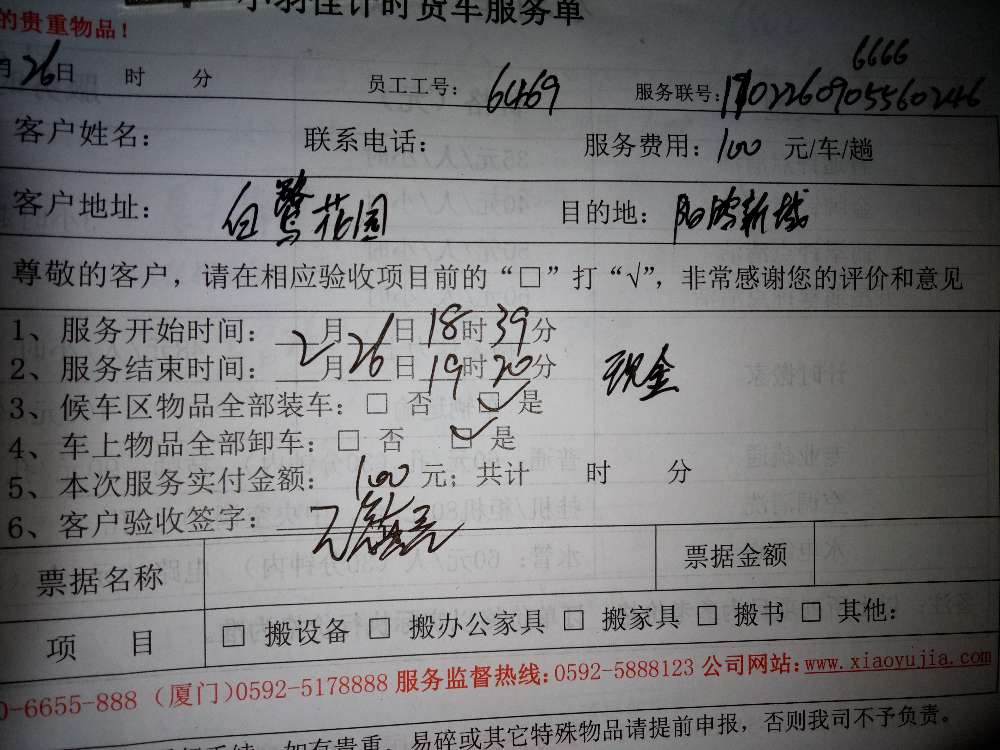 小羽佳计时货车服务单
的贵重物品！
月26日 时 分 员工工号：6469 服务联号：
6666
客户姓名： 联系电话： 服务费用：100 元/车/趟
客户地址：白鹭花园 目的地：新城
尊敬的客户，请在相应验收项目前的“□”打“√”，非常感谢您的评价和意见
1、服务开始时间：2月26日18时39分
2、服务结束时间：2月26日19时20分 现金
3、候车区物品全部装车：□ 否 ☑ 是
4、车上物品全部卸车：□ 否 ☑ 是
5、本次服务实付金额：100元；共计 时 分
6、客户验收签字：
票据名称 票据金额
项 目 □ 搬设备 □ 搬办公家具 □ 搬家具 □ 搬书 □ 其他：
0-6655-888（厦门）0592-5178888 服务监督热线：0592-5888123 公司网站：www.xiaoyujia.com
如有贵重、易碎或其它特殊物品请提前申报，否则我司不予负责。